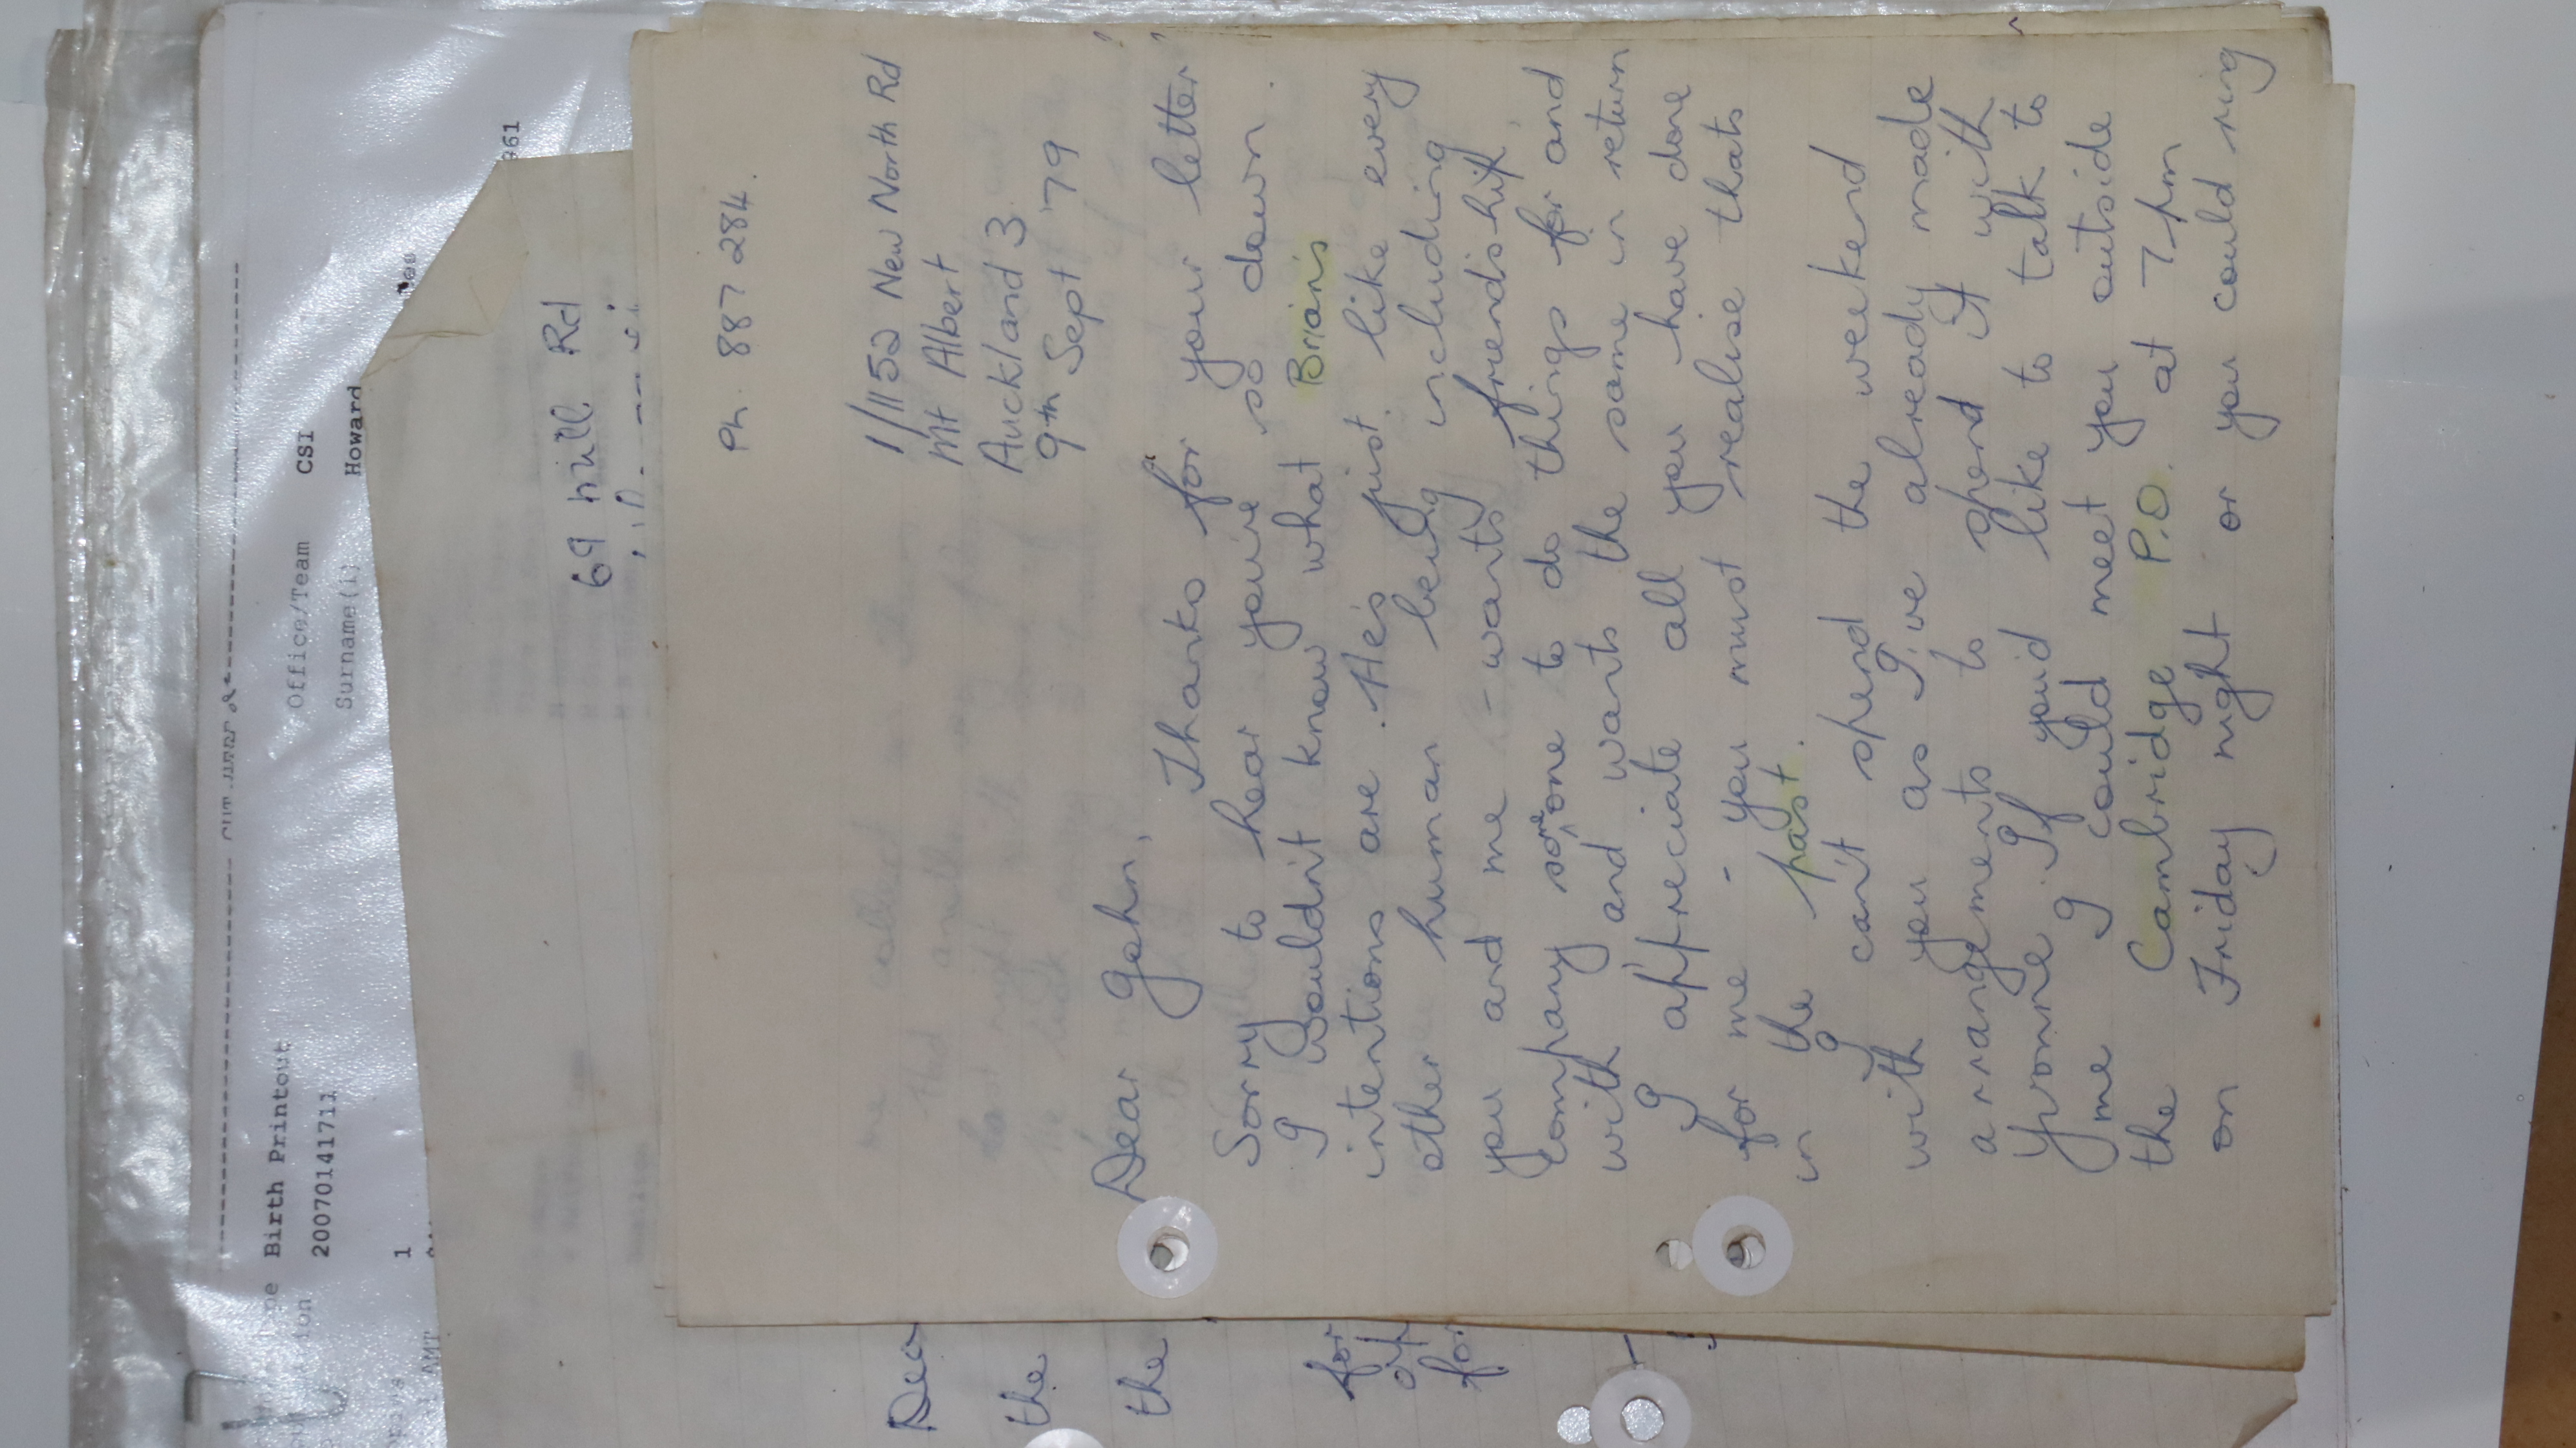 Birth Printout
Office/Team CSI
200701411711
Surname(1) Howard
1
961
69 hill Rd
Ph. 887 284.
1/1152 New North Rd
Mt Albert
Auckland 3
9th Sept '79
Dear John,
Thanks for your letter
Sorry to hear you're so down.
I wouldn't know what Brian's
intentions are. He's just like every
other human being including
you and me - wants friendship
company some one to do things for and
with and wants the same in return
I appreciate all you have done
for me - you must realise that's
in the past.
I can't spend the weekend
with you as I've already made
arrangements to spend it with
Yvonne. If you'd like to talk to
me I could meet you outside
the Cambridge P.O. at 7 pm
on Friday night or you could ring
Dear
the
the
for
for